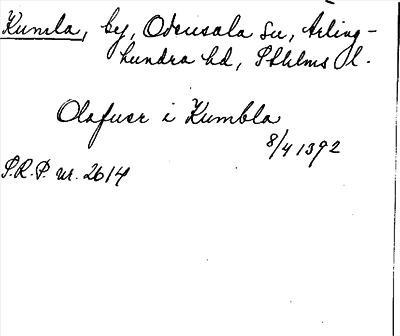 Kumla, by, Odensala sn, Ärling-
hundra hd, Sthlms l.
Olafuer i Kumbla
8/4 1392
S.R.P. nr. 2614